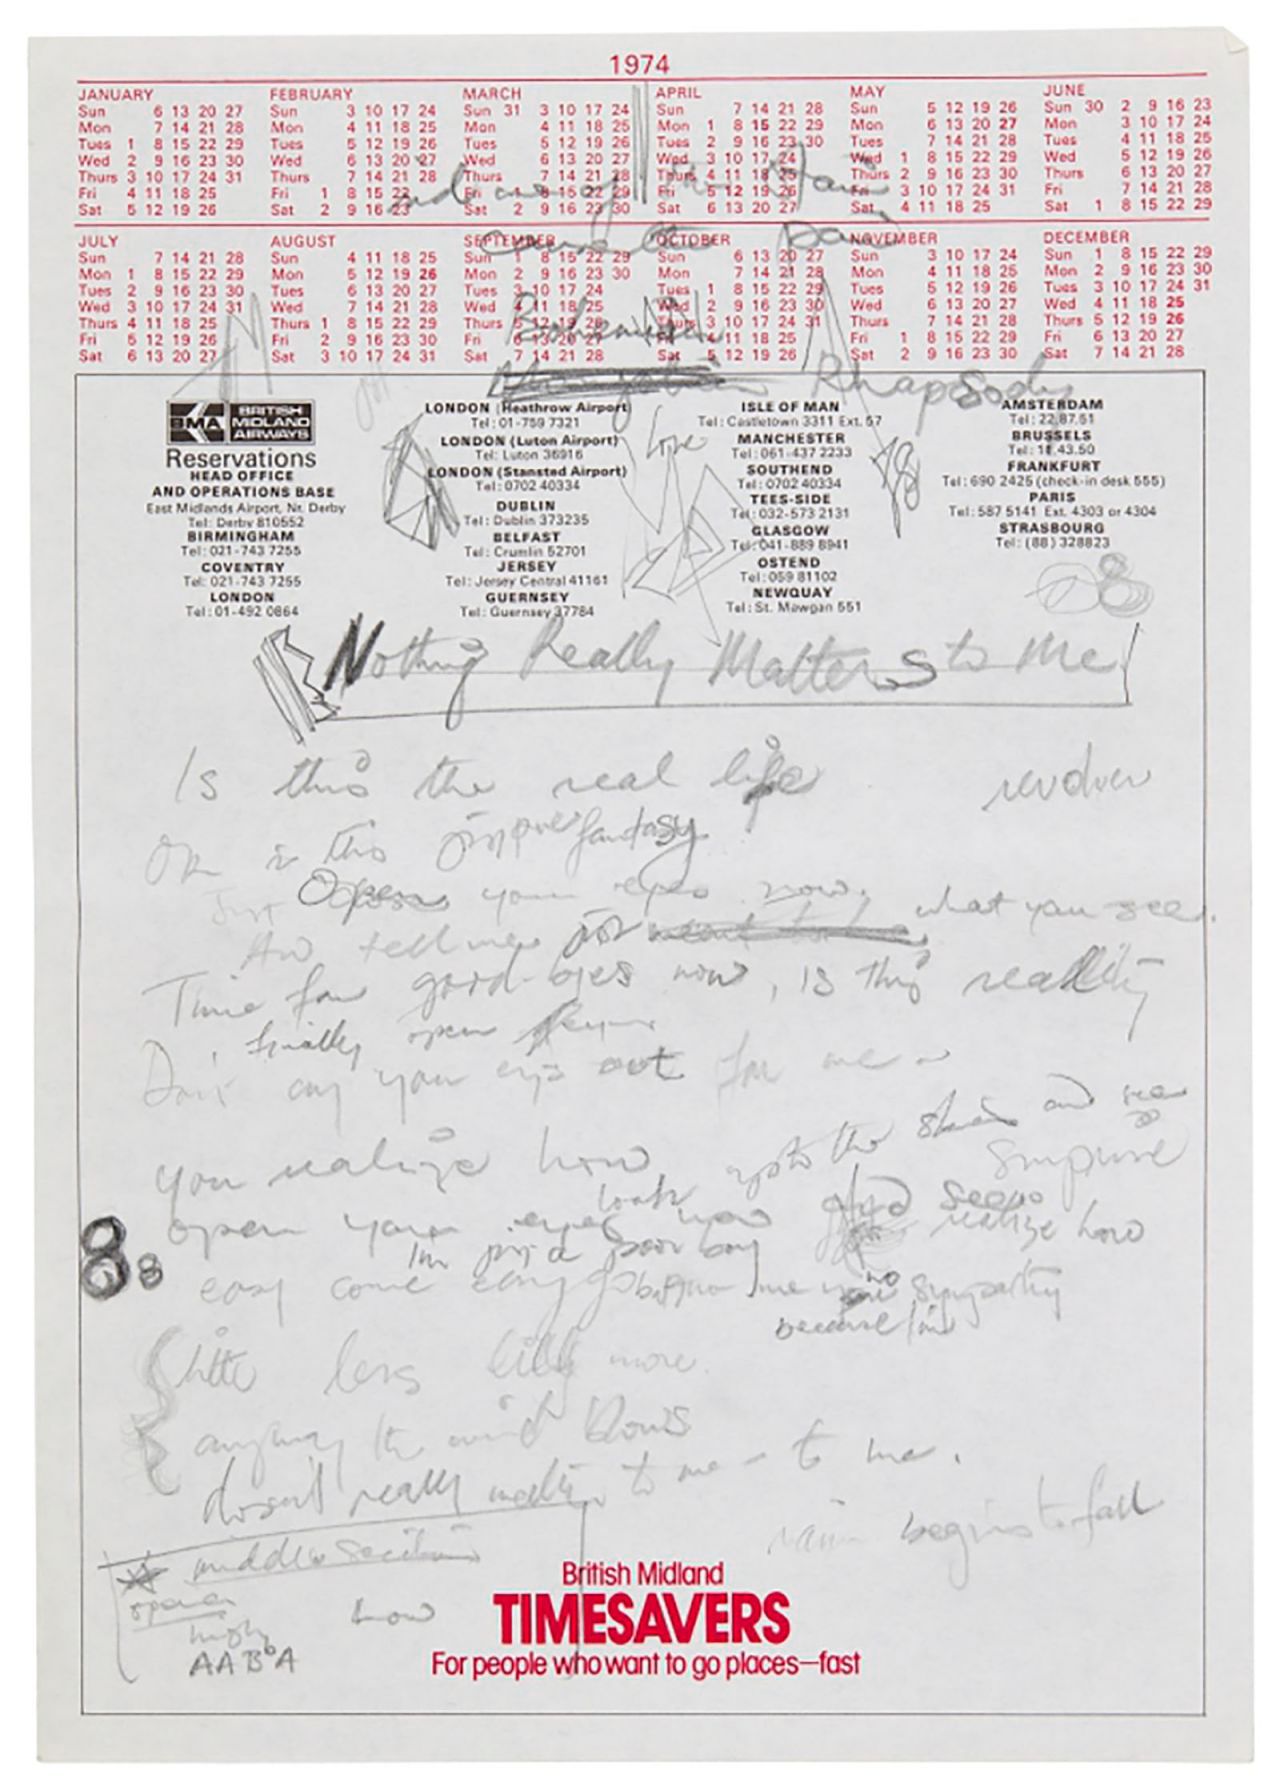 1974
JANUARY
Sun 6 13 20 27
Mon 7 14 21 28
Tues 1 8 15 22 29
Wed 2 9 16 23 30
Thurs 3 10 17 24 31
Fri 4 11 18 25
Sat 5 12 19 26
FEBRUARY
Sun 3 10 17 24
Mon 4 11 18 25
Tues 5 12 19 26
Wed 6 13 20 27
Thurs 7 14 21 28
Fri 1 8 15 22
Sat 2 9 16 23
MARCH
Sun 31 3 10 17 24
Mon 4 11 18 25
Tues 5 12 19 26
Wed 6 13 20 27
Thurs 7 14 21 28
Fri 1 8 15 22 29
Sat 2 9 16 23 30
APRIL
Sun 7 14 21 28
Mon 1 8 15 22 29
Tues 2 9 16 23 30
Wed 3 10 17 24
Thurs 4 11 18 25
Fri 5 12 19 26
Sat 6 13 20 27
MAY
Sun 5 12 19 26
Mon 6 13 20 27
Tues 7 14 21 28
Wed 1 8 15 22 29
Thurs 2 9 16 23 30
Fri 3 10 17 24 31
Sat 4 11 18 25
JUNE
Sun 30 2 9 16 23
Mon 3 10 17 24
Tues 4 11 18 25
Wed 5 12 19 26
Thurs 6 13 20 27
Fri 7 14 21 28
Sat 1 8 15 22 29
JULY
Sun 7 14 21 28
Mon 1 8 15 22 29
Tues 2 9 16 23 30
Wed 3 10 17 24 31
Thurs 4 11 18 25
Fri 5 12 19 26
Sat 6 13 20 27
AUGUST
Sun 4 11 18 25
Mon 5 12 19 26
Tues 6 13 20 27
Wed 7 14 21 28
Thurs 1 8 15 22 29
Fri 2 9 16 23 30
Sat 3 10 17 24 31
SEPTEMBER
Sun 1 8 15 22 29
Mon 2 9 16 23 30
Tues 3 10 17 24
Wed 4 11 18 25
Thurs 5 12 19 26
Fri 6 13 20 27
Sat 7 14 21 28
OCTOBER
Sun 6 13 20 27
Mon 7 14 21 28
Tues 1 8 15 22 29
Wed 2 9 16 23 30
Thurs 3 10 17 24 31
Fri 4 11 18 25
Sat 5 12 19 26
NOVEMBER
Sun 3 10 17 24
Mon 4 11 18 25
Tues 5 12 19 26
Wed 6 13 20 27
Thurs 7 14 21 28
Fri 1 8 15 22 29
Sat 2 9 16 23 30
DECEMBER
Sun 1 8 15 22 29
Mon 2 9 16 23 30
Tues 3 10 17 24 31
Wed 4 11 18 25
Thurs 5 12 19 26
Fri 6 13 20 27
Sat 7 14 21 28
Bohemian
Mongolian Rhapsody
BMA BRITISH MIDLAND AIRWAYS
Reservations
HEAD OFFICE
AND OPERATIONS BASE
East Midlands Airport, Nr. Derby
Tel: Derby 810552
BIRMINGHAM
Tel: 021-743 7255
COVENTRY
Tel: 021-743 7255
LONDON
Tel: 01-492 0864
LONDON (Heathrow Airport)
Tel: 01-759 7321
LONDON (Luton Airport)
Tel: Luton 36916
LONDON (Stansted Airport)
Tel: 0702 40334
DUBLIN
Tel: Dublin 373235
BELFAST
Tel: Crumlin 52701
JERSEY
Tel: Jersey Central 41161
GUERNSEY
Tel: Guernsey 37784
Love
ISLE OF MAN
Tel: Castletown 3311 Ext. 57
MANCHESTER
Tel: 061-437 2233
SOUTHEND
Tel: 0702 40334
TEES-SIDE
Tel: 032-573 2131
GLASGOW
Tel: 041-889 8941
OSTEND
Tel: 059 81102
NEWQUAY
Tel: St. Mawgan 551
AMSTERDAM
Tel: 22.87.51
BRUSSELS
Tel: 18.43.50
FRANKFURT
Tel: 690 2425 (check-in desk 555)
PARIS
Tel: 587 5141 Ext. 4303 or 4304
STRASBOURG
Tel: (88) 328823
Nothing Really Matters to Me
Is this the real life
revolver
Or is this just fantasy
Just Open your eyes now,
And tell me what you see.
Time for good-byes now, is this reality
finally open
Don't cry your eyes out for me
you realize how
up to the skies and see
surprise
look
open your eyes now and realize how
I'm just a poor boy
easy come easy go no sympathy
because I'm
little less little more
anyway the wind blows
doesn't really matter to me - to me.
rain begins to fall
middle section
opera
how
high
AABA
8 8
British Midland
TIMESAVERS
For people who want to go places—fast